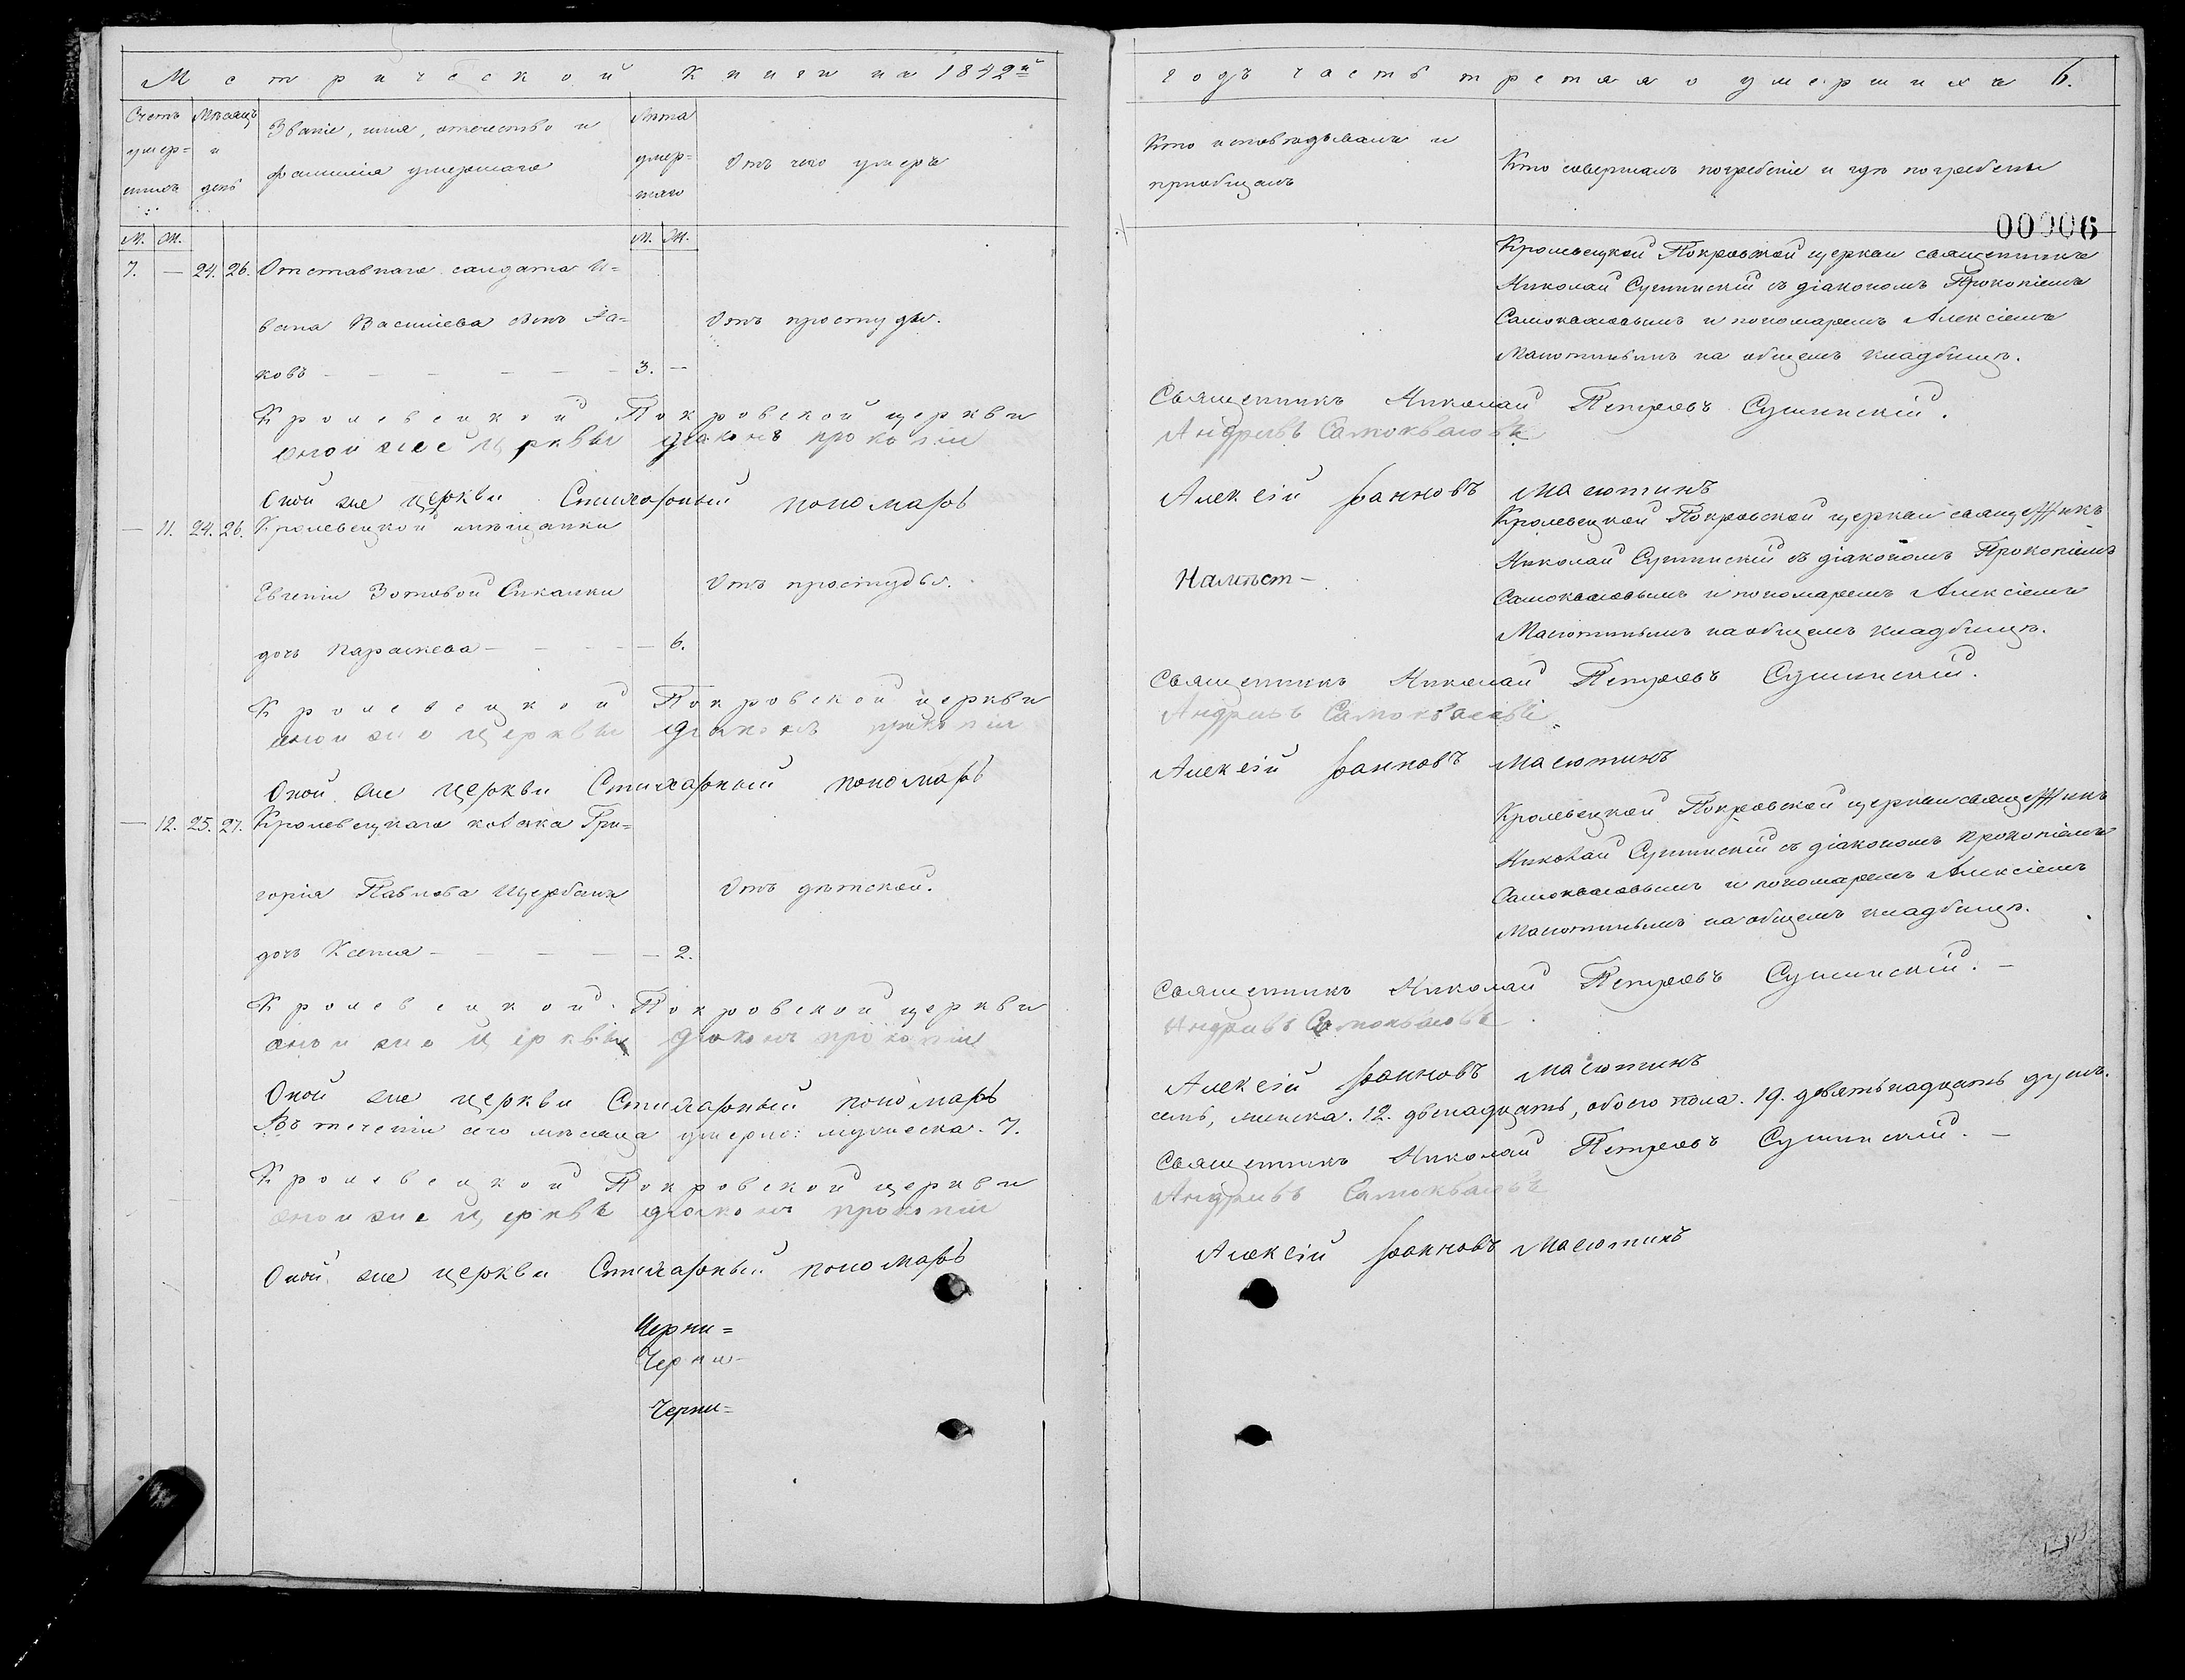 Метрической Книги на 1842й
Счетъ умер= шихъ
Мѣсяцъ и день
Званіе, имя, отечество и фамилія умершаго
Лѣта умер= шаго
Отъ чего умеръ
М. Ж.
М. Ж.
7. — 24. 26. Отставнаго салдата И=
вана Васильева сынъ Яковъ
Отъ простуды.
ковъ — — — — — — 3. —
Кролевецкой Покровской церкви
оной же церквы діаконъ прокопій
Оной же церкви Стихарный пономарь
— 11. 24. 26. Кролевецкой мѣщанки
Евгеніи Зотовой
Отъ простуды.
дочь Параскева — — — — 6.
Кролевецкой Покровской церкви
оной же церквы діаконъ прокопій
Оной же церкви Стихарный пономарь
— 12. 25. 27. Кролевецкаго козака Гри=
горія Павлова Щербака
Отъ дѣтской.
дочь Ксенія — — — — — 2.
Кролевецкой Покровской церкви
оной же церквы діаконъ прокопій
Оной же церкви Стихарный пономарь
Въ теченіи сего мѣсяца умерло: мужеска. 7.
Кролевецкой Покровской церкви
оной же церквы діаконъ прокопій
Оной же церкви Стихарный пономарь
Черни=
Черни-
Черни=
годъ часть третяя о умершихъ 6.
Кто исповѣдывалъ и пріобщалъ
Кто совершалъ погребеніе и гдѣ погребены
00006
Кролевецкой Покровской церкви священникъ
Николай Сушинскій съ діакономъ Прокопіемъ
Самоквасовымъ и пономаремъ Алексіемъ
Масютинымъ на общемъ кладбищѣ.
Священникъ Николай Петровъ Сушинскій.
Андріевъ Самоквасовъ
Алексій Іоанновъ Масютинъ
Кролевецкой Покровской церкви священникъ
Николай Сушинскій съ діакономъ Прокопіемъ
Намѣст-
Самоквасовымъ и пономаремъ Алексіемъ
Масютинымъ на общемъ кладбищѣ.
Священникъ Николай Петровъ Сушинскій.
Андріевъ Самоквасовъ
Алексій Іоанновъ Масютинъ
Кролевецкой Покровской церкви священникъ
Николай Сушинскій съ діакономъ Прокопіемъ
Самоквасовымъ и пономаремъ Алексіемъ
Масютинымъ на общемъ кладбищѣ.
Священникъ Николай Петровъ Сушинскій. —
Андріевъ Самоквасовъ
Алексій Іоанновъ Масютинъ
семь, женска. 12. двенадцать, обоего пола. 19. девятьнадцать душъ.
Священникъ Николай Петровъ Сушинскій. —
Андріевъ Самоквасовъ
Алексій Іоанновъ Масютинъ